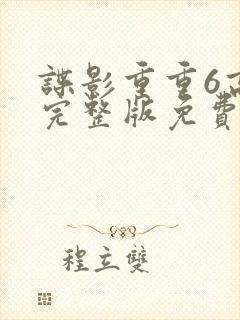 諜影重重6高
完整版免費
程立雙